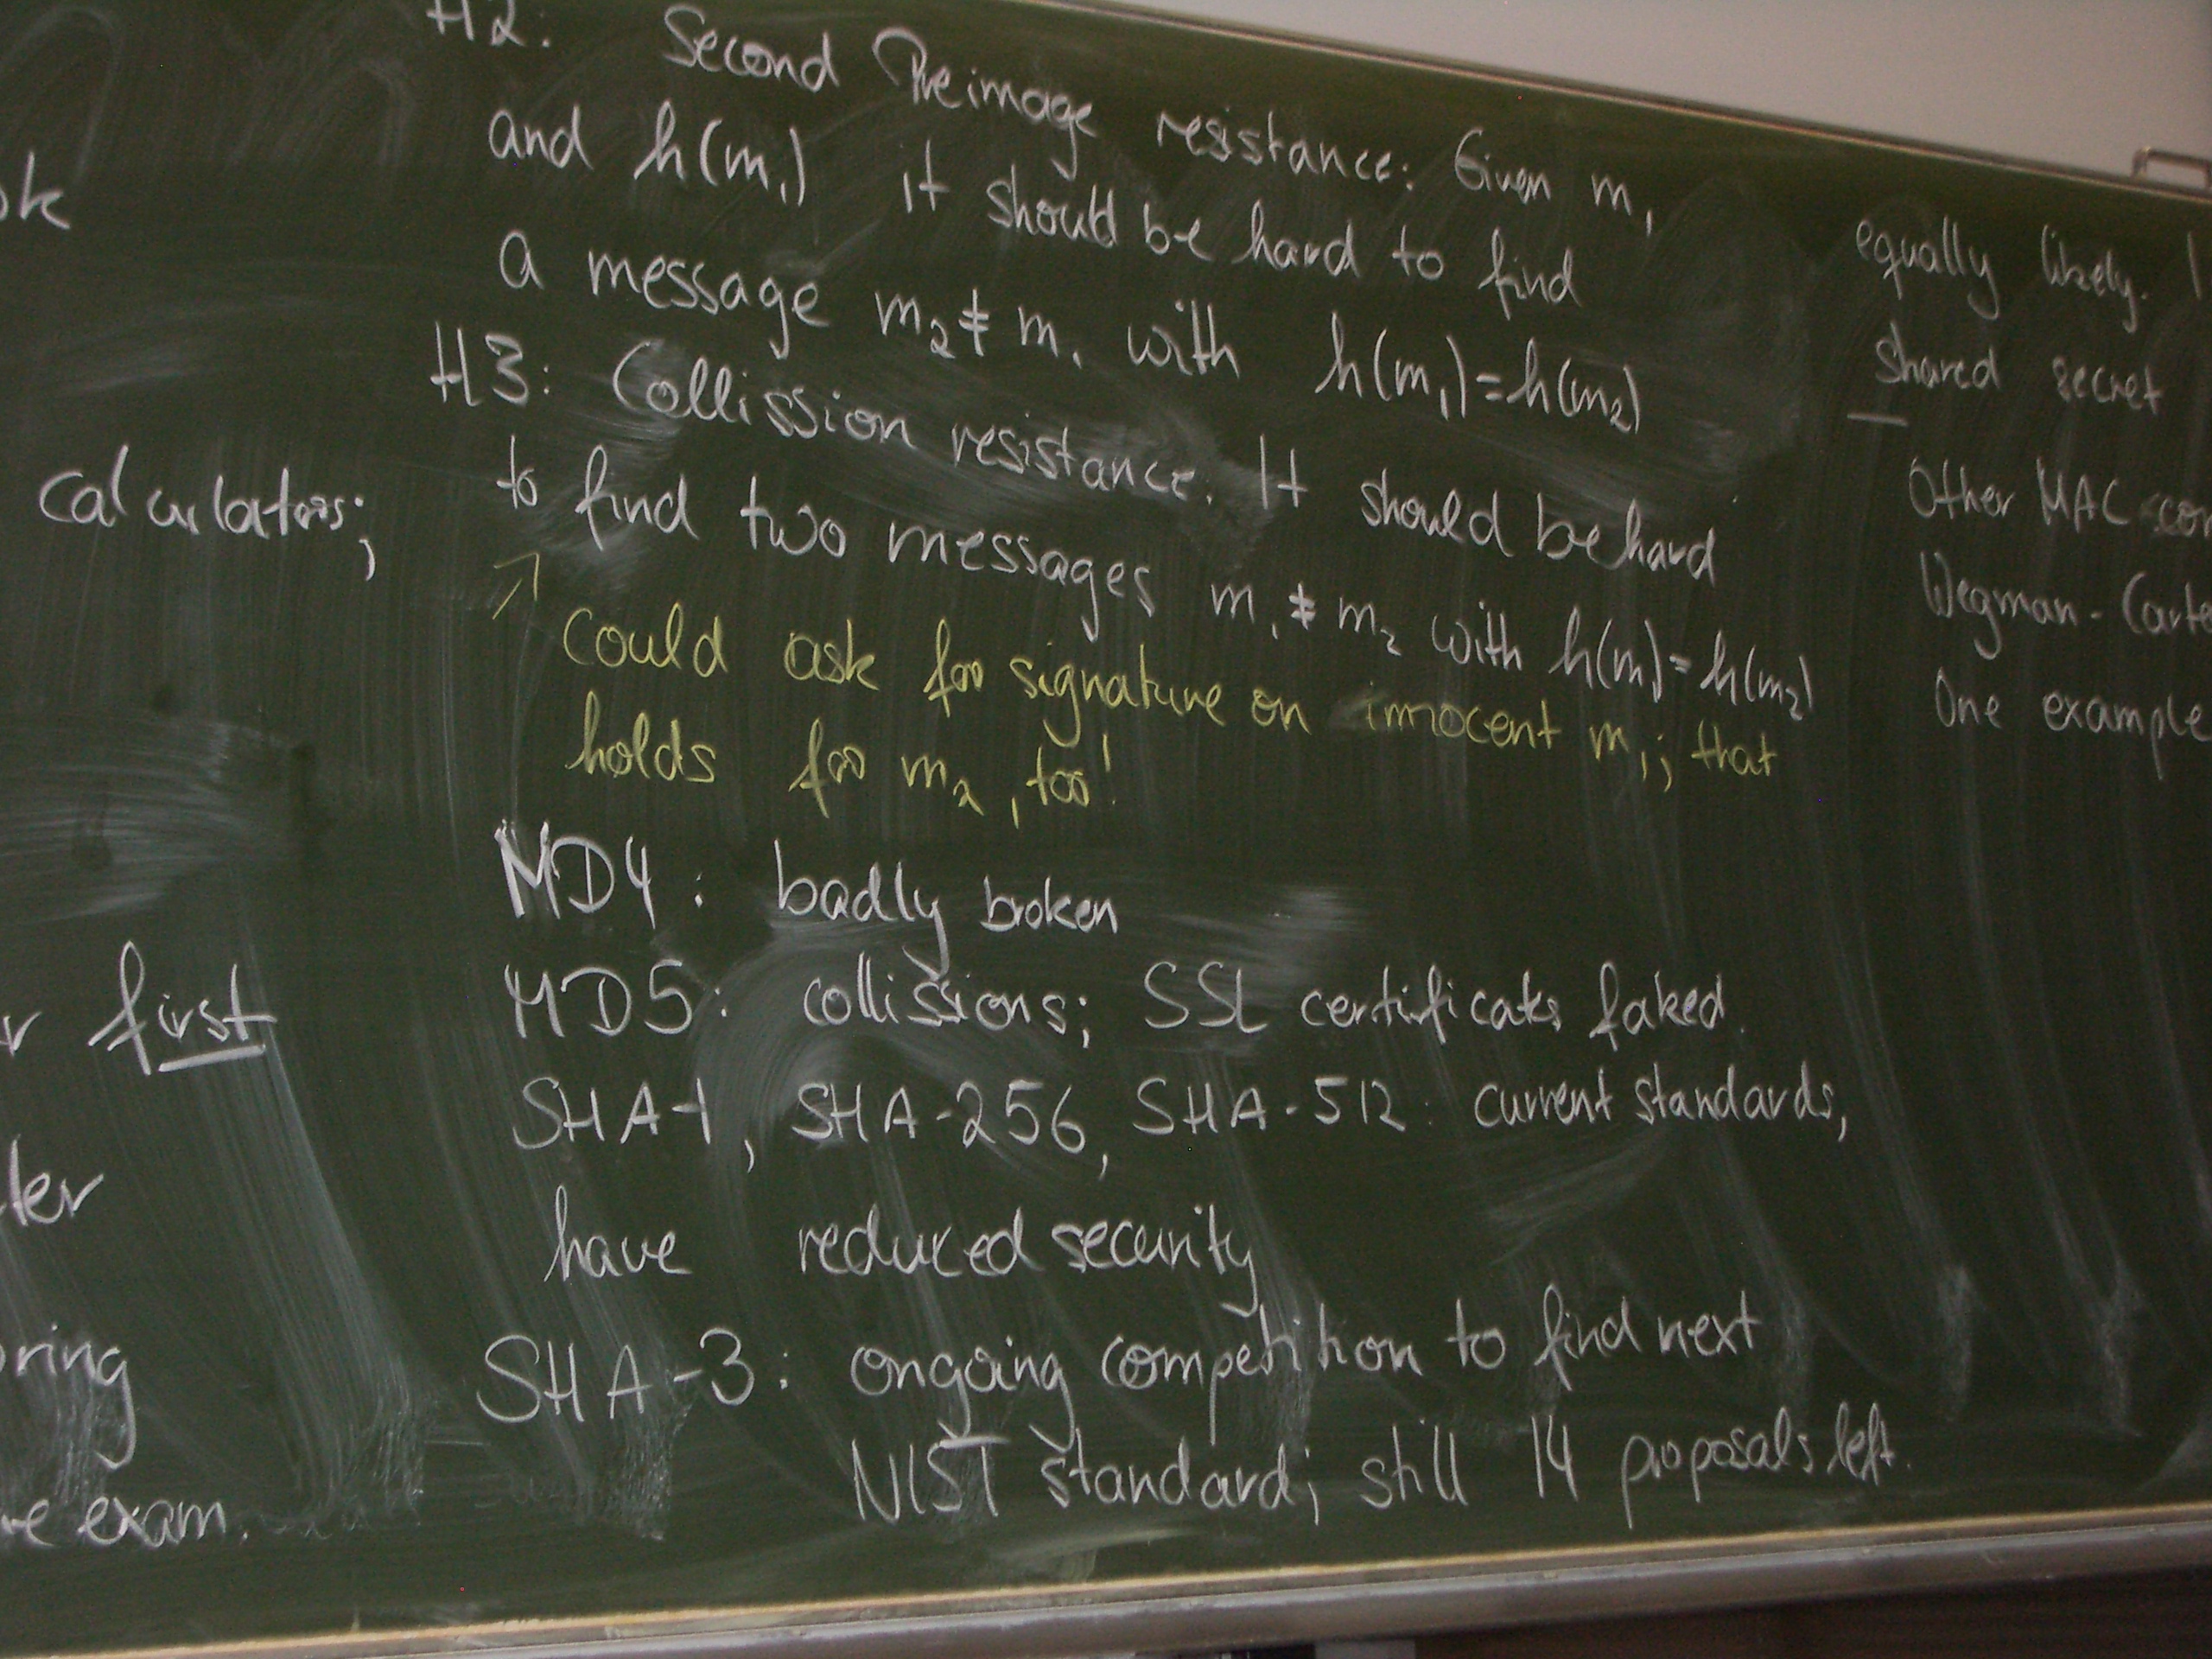 ok
calculators;
r first
ter
oring
re exam.
H2: Second Preimage resistance: Given m₁
and h(m₁) it should be hard to find
a message m₂ ≠ m₁ with h(m₁)=h(m₂)
H3: Collission resistance. It should be hard
to find two messages m₁ ≠ m₂ with h(m₁)=h(m₂)
↗ Could ask for signature on innocent m₁; that
holds for m₂, too!
MD4: badly broken
MD5: collissions; SSL certificates faked.
SHA-1, SHA-256, SHA-512: current standards,
have reduced security
SHA-3: ongoing competition to find next
NIST standard; still 14 proposals left.
equally likely. I
shared secret
Other MAC con
Wegman-Carte
One example